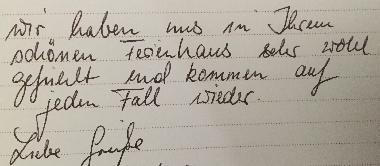 wir haben uns in Ihrem
schönen Ferienhaus sehr wohl
gefühlt und kommen auf
jeden Fall wieder.
Liebe Grüße